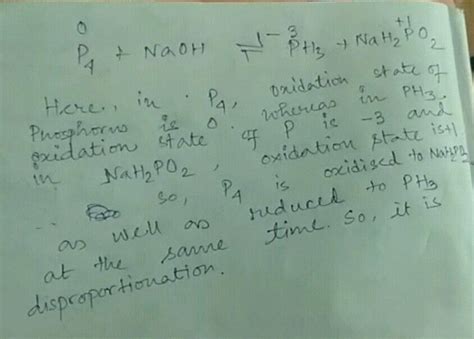 0 -3 +1
P4 + NaOH ⇌ PH3 + NaH2PO2
Here, in P4, oxidation state of
Phosphorus is 0 whereas in PH3.
oxidation state of P is -3 and
in NaH2PO2, oxidation state is +1
so, P4 is oxidised to NaH2PO2
as well as reduced to PH3
at the same time. So, it is
disproportionation.